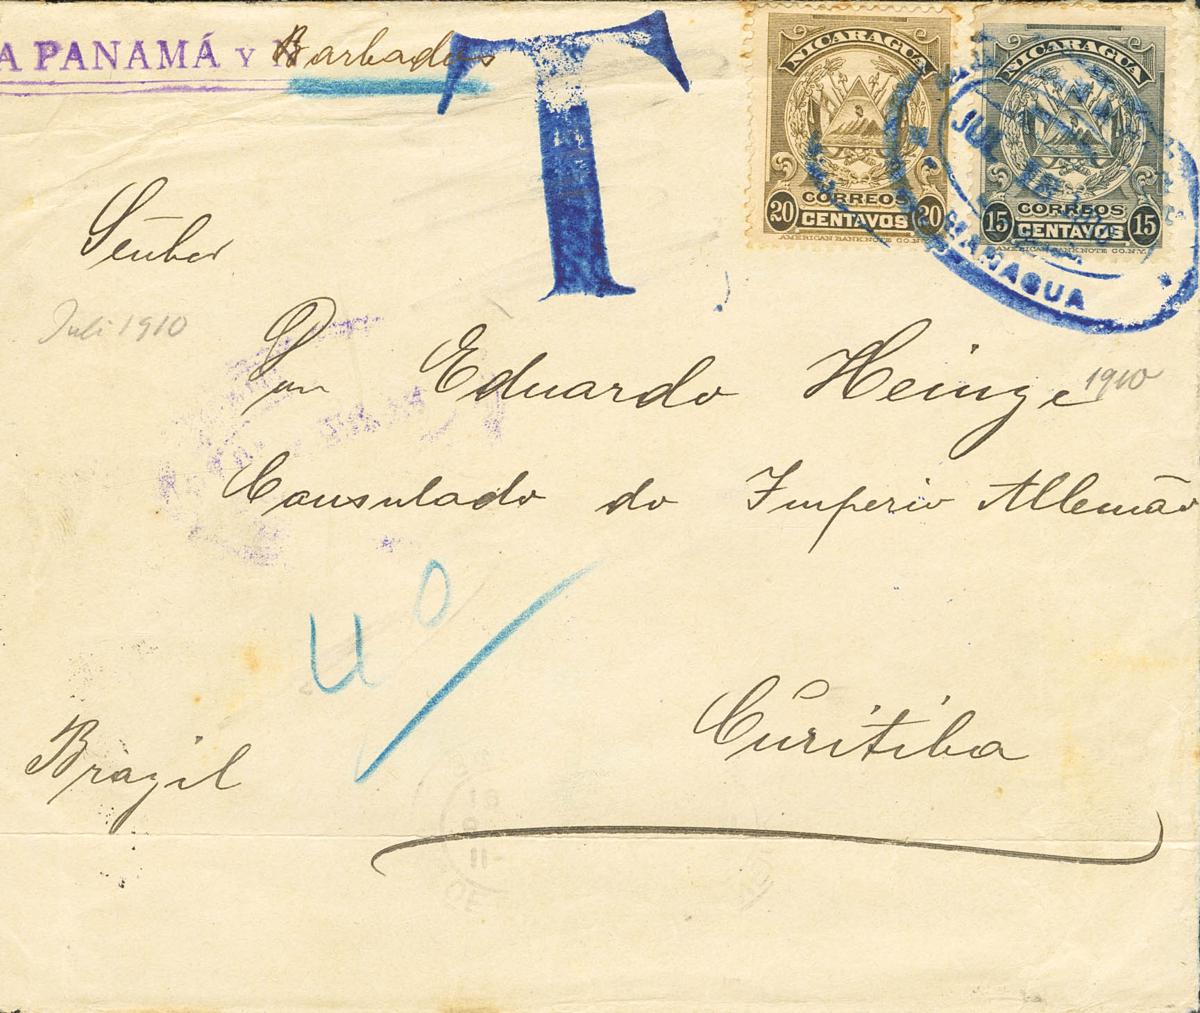 A PANAMÁ Y Barbados
T
NICARAGUA
CORREOS
20 CENTAVOS 20
AMERICAN BANK NOTE CO. N.Y.
NICARAGUA
CORREOS
15 CENTAVOS 15
AMERICAN BANK NOTE CO. N.Y.
JUL 15
MANAGUA
Senhor
Juli 1910
Don Eduardo Heinze
1910
Consulado do Imperio Allemão
40
Curitiba
Brazil